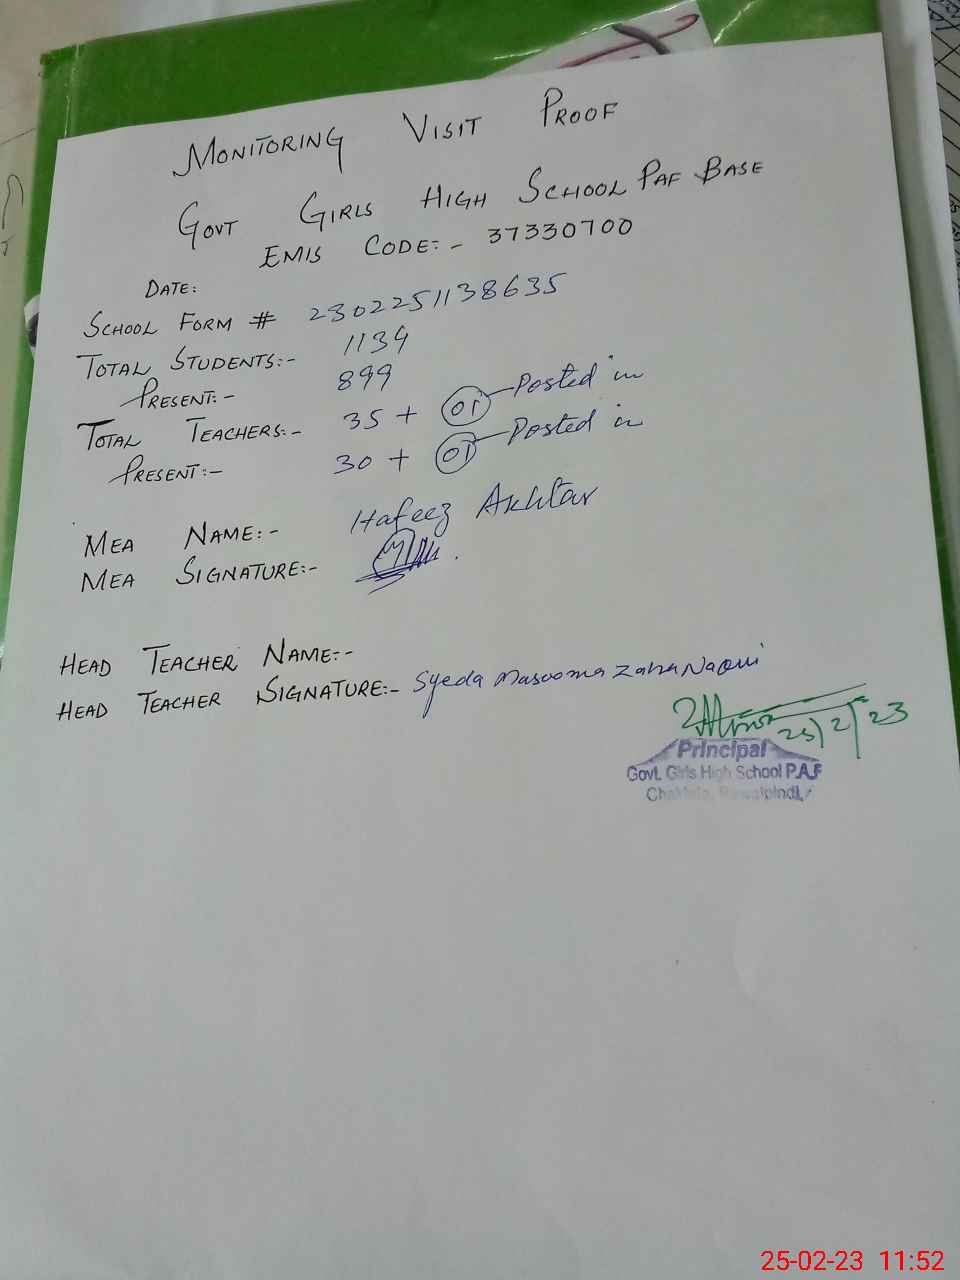 MONITORING VISIT PROOF
GOVT GIRLS HIGH SCHOOL PAF BASE
EMIS CODE:- 37330700
DATE:
SCHOOL FORM # 2302251138635
TOTAL STUDENTS:- 1134
PRESENT:- 899
TOTAL TEACHERS:- 35 + 01 Posted in
PRESENT:- 30 + 01 Posted in
MEA NAME:- Hafeez Akhtar
MEA SIGNATURE:-
HEAD TEACHER NAME:-
HEAD TEACHER SIGNATURE:- Syeda Masooma Zahra Naqvi
25/2/23
Principal
Govt. Girls High School P.A.F
Chaklala, Rawalpindi
25-02-23 11:52